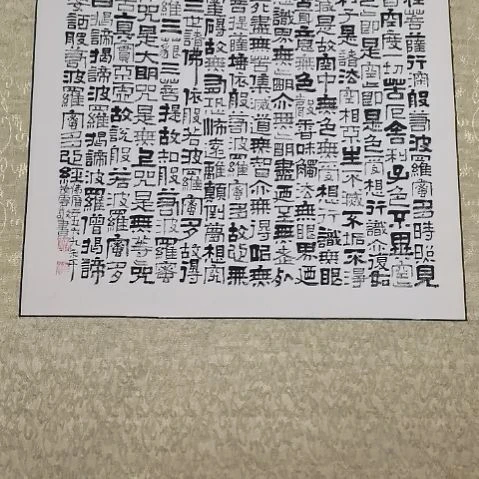 在菩薩行深般若波羅蜜多時照見
皆空度一切苦厄舍利子色不異空
色即是空空即是色受想行識亦復如
利子是諸法空相不生不滅不垢不淨
減是故空中無色無受想行識無眼
身意無色聲香味觸法無眼界乃
識界無無明亦無無明盡乃至無老
死盡無苦集滅道無智亦無得以無
菩提薩埵依般若波羅蜜多故心無
罣礙故無有恐怖遠離顛倒夢想究
三世諸佛依般若波羅蜜多故得
羅三藐三菩提故知般若波羅蜜
咒是大明咒是無上咒是無等等咒
真實不虛故說般若波羅蜜多
曰揭諦揭諦波羅揭諦波羅僧揭諦
婆訶般若波羅蜜多心經